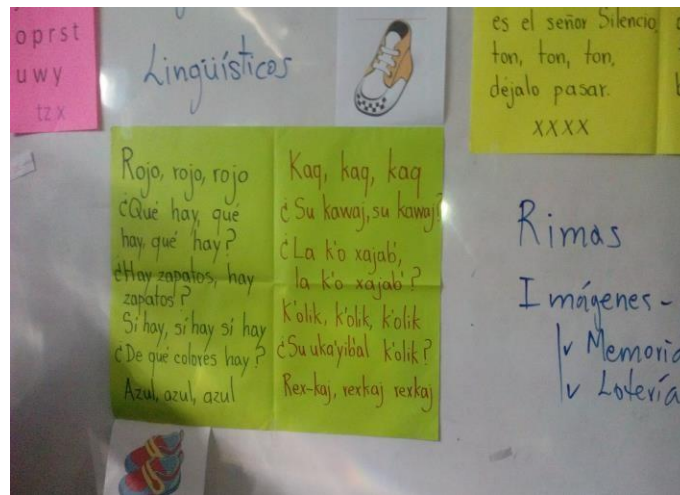 oprst
uwy
tzx
Lingüísticos
es el señor Silencio
ton, ton, ton,
déjalo pasar.
XXXX
Rojo, rojo, rojo
¿Qué hay, qué
hay, qué hay?
¿Hay zapatos, hay
zapatos?
Sí hay, sí hay sí hay
¿De qué colores hay?
Azul, azul, azul
Kaq, kaq, kaq
¿Su kawaj, su kawaj?
¿La k'o xajab',
la k'o xajab'?
K'olik, k'olik, k'olik
¿Su uka'yib'al k'olik?
Rex-kaj, rexkaj rexkaj
Rimas
Imágenes-
Memoria
Lotería